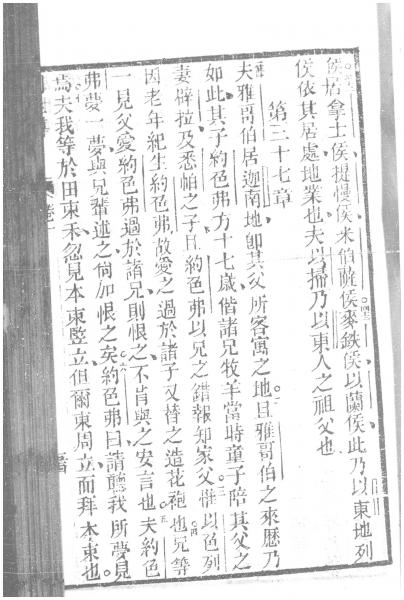 侯居拿士侯提慢侯米伯薩侯麥鉄侯以蘭侯此乃以東地列
侯依其居處地業也夫以掃乃以東人之祖父也
第三十七章
夫雅哥伯居迦南地卽其父所客寓之地且雅哥伯之來歷乃
如此其子約色弗方十七歲偕諸兄牧羊當時童子陪其父之
妻辟拉及悉帕之子且約色弗以兄之錯報知家父惟以色列
因老年紀生約色弗故愛之過於諸子又替之造花袍也兄等
一見父愛約色弗過於諸兄則恨之不肯與之安言也夫約色
弗夢一夢與兄輩述之倘加恨之矣約色弗曰請聽我所夢見
焉夫我等於田東禾忽見本束竪立但爾束周立而拜本束也